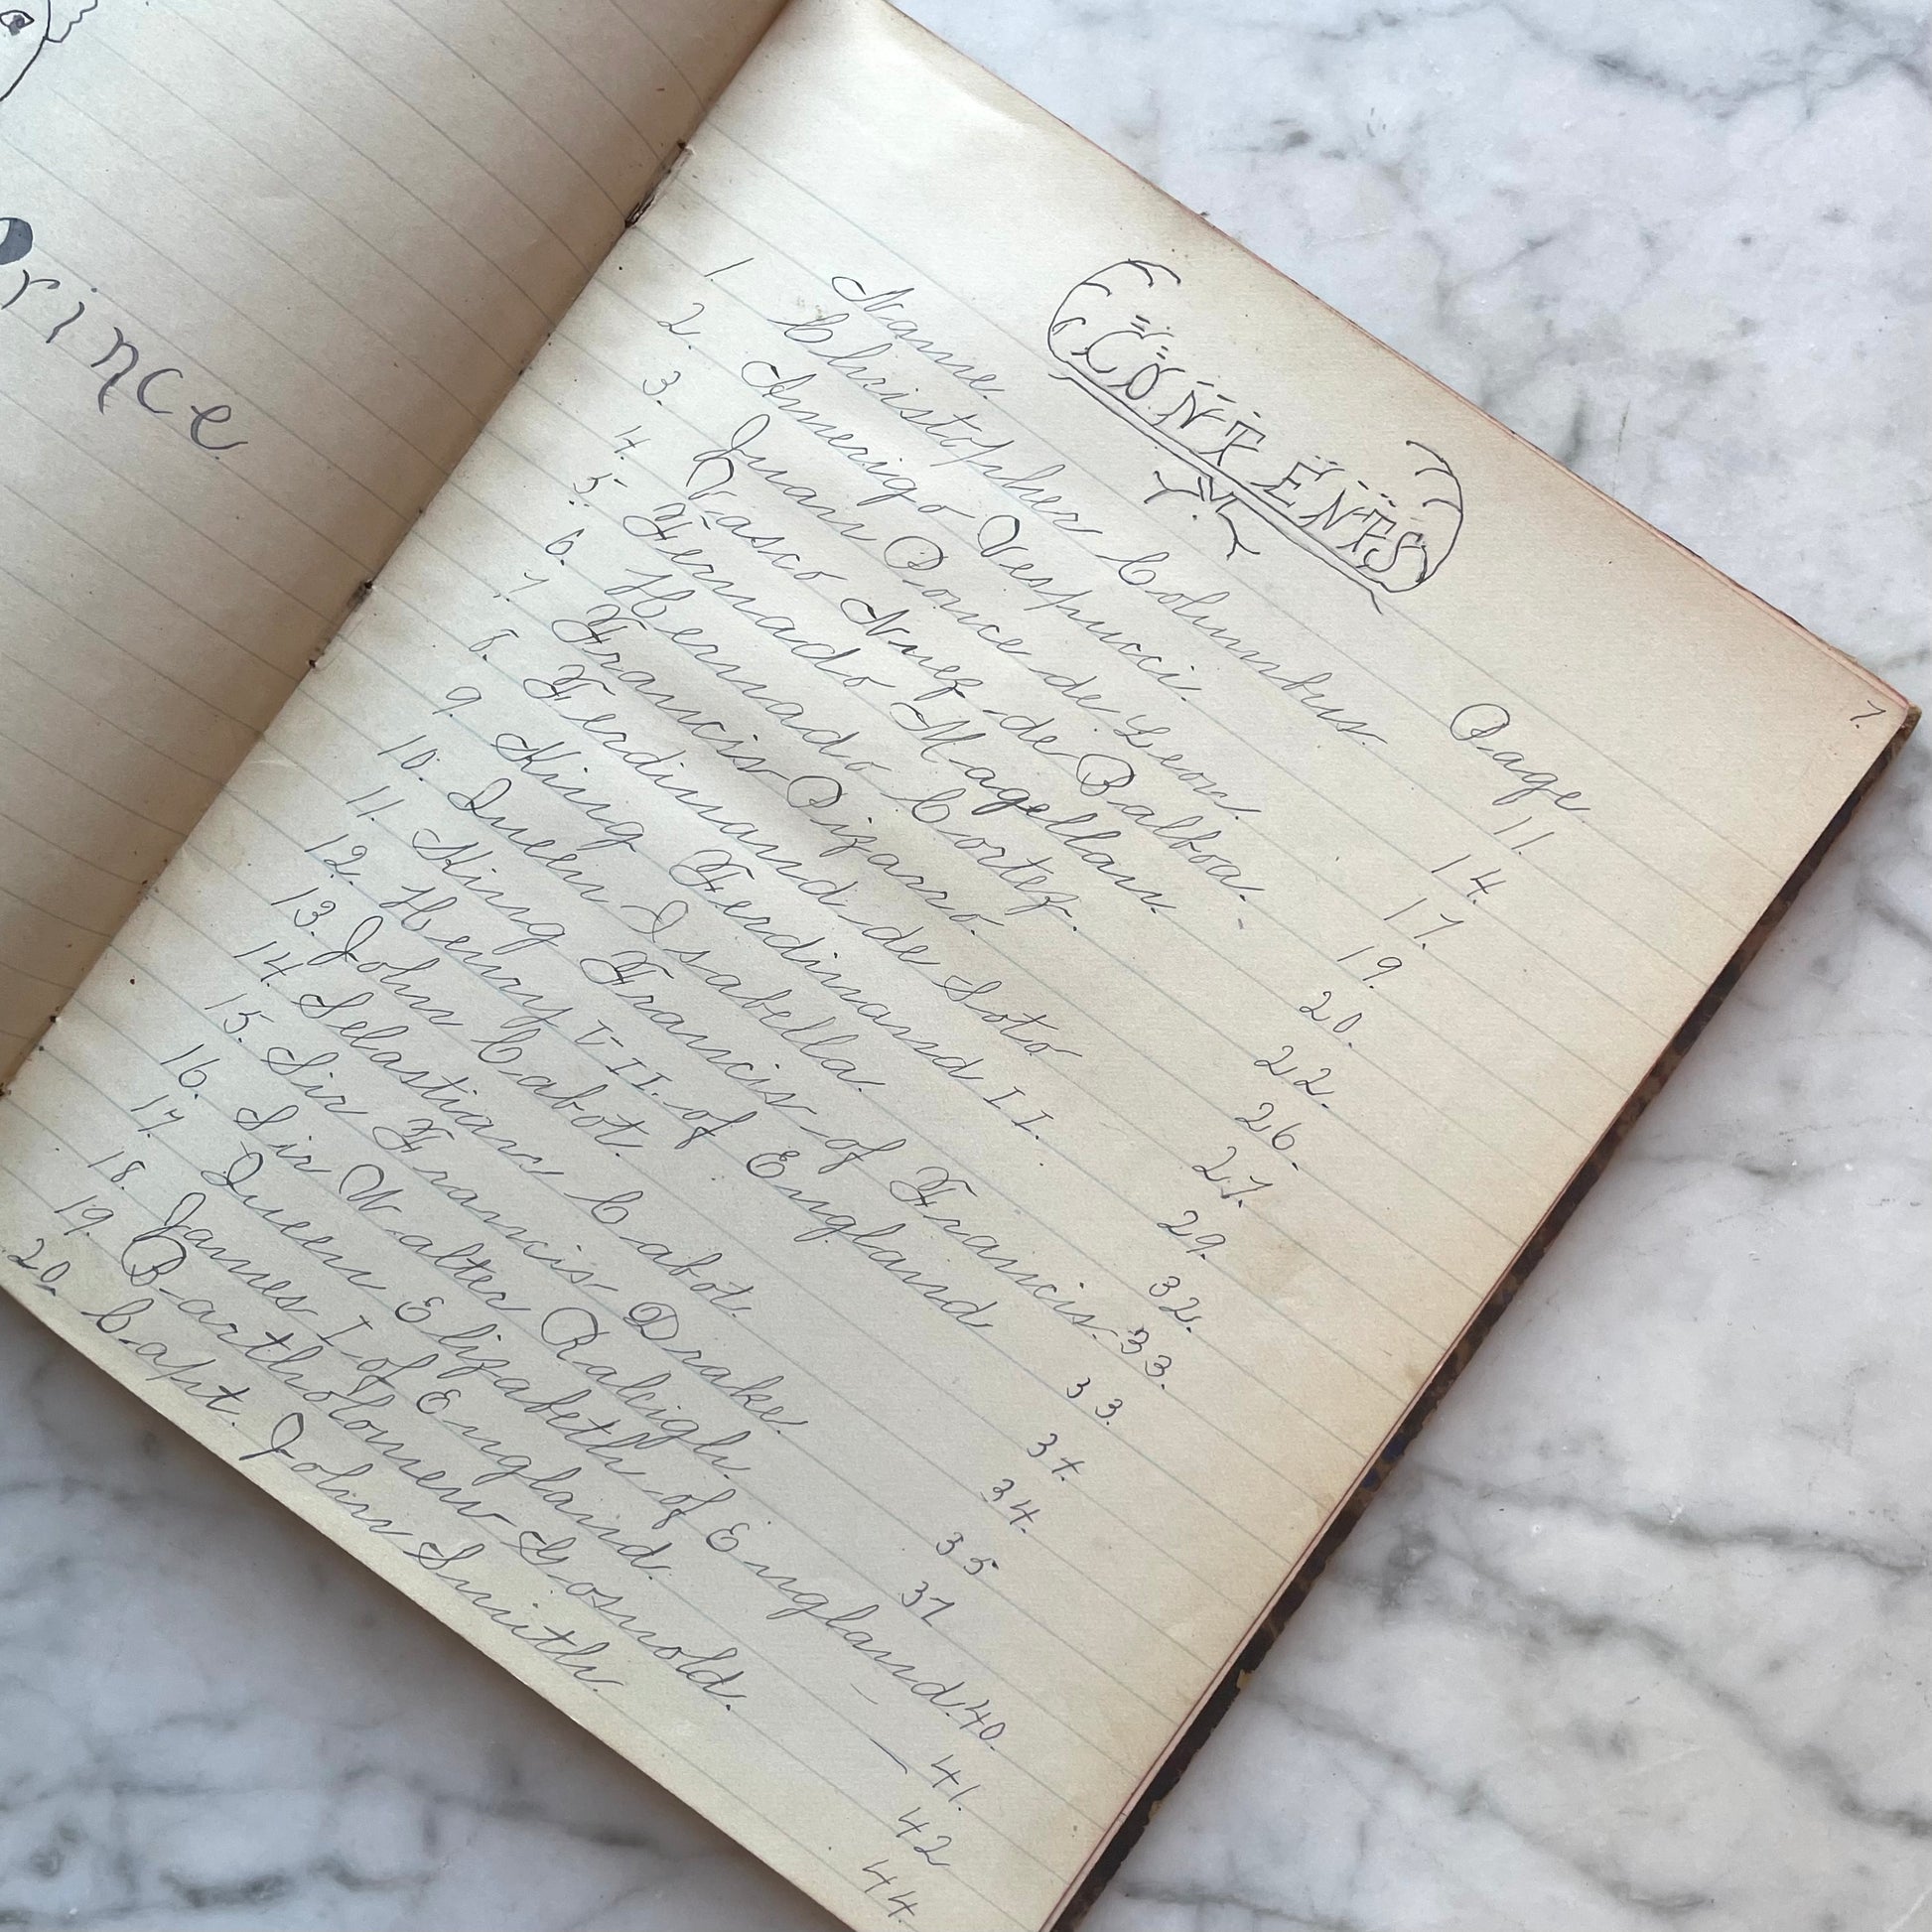 rince
7.
CONTENTS
Name Page
1. Christopher Columbus. 11.
2. Amerigo Vespucci. 14.
3. Juan Ponce de Leon. 17.
4. Vasco Nuez de Balboa. 19.
5. Fernado Magellan. 20.
6. Hernado Cortez. 22.
7. Francis Pizarro. 26.
8. Ferdinand de Soto 27.
9. King Ferdinand II. 29.
10. Queen Isabella. 32.
11. King Francis of Francis. 33.
12. Henry VII. of England 33.
13. John Cabot. 34.
14. Sebastian Cabot. 34.
15. Sir Francis Drake. 35
16. Sir Walter Raleigh. 37
17. Queen Elizabeth of England. 40.
18. James I of England. — 41.
19. Bartholomew Gosnold. 42
20. Capt. John Smith. 44.